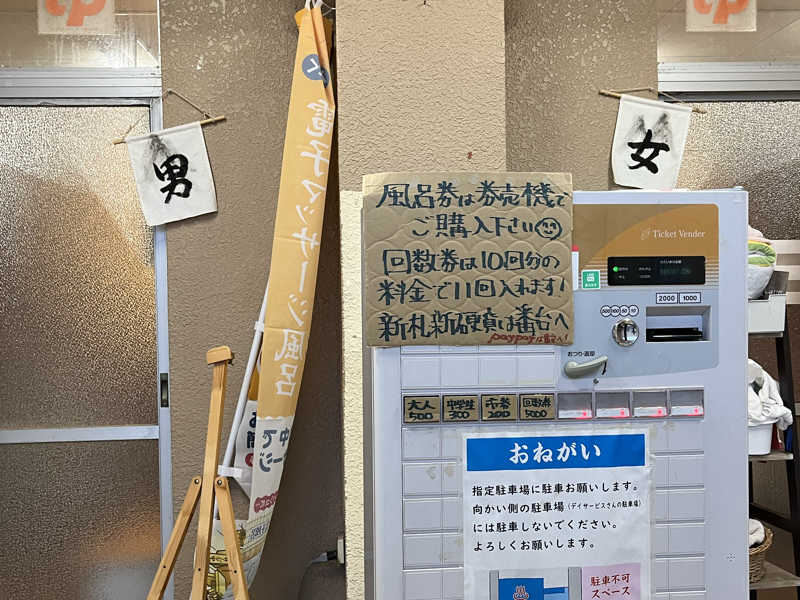 男
電子マッサージ風呂
女
風呂券は券売機で
ご購入下さい
回数券は10回分の
料金で11回入れます!
新札新硬貨は番台へ
paypayは番台へ
Ticket Vender
2000 1000
500 100 50 10
おつり・返却
大人
500
中学生
300
小者
200
回数券
5000
おねがい
指定駐車場に駐車お願いします。
向かい側の駐車場(デイサービスさんの駐車場)
には駐車しないでください。
よろしくお願いします。
駐車不可
スペース